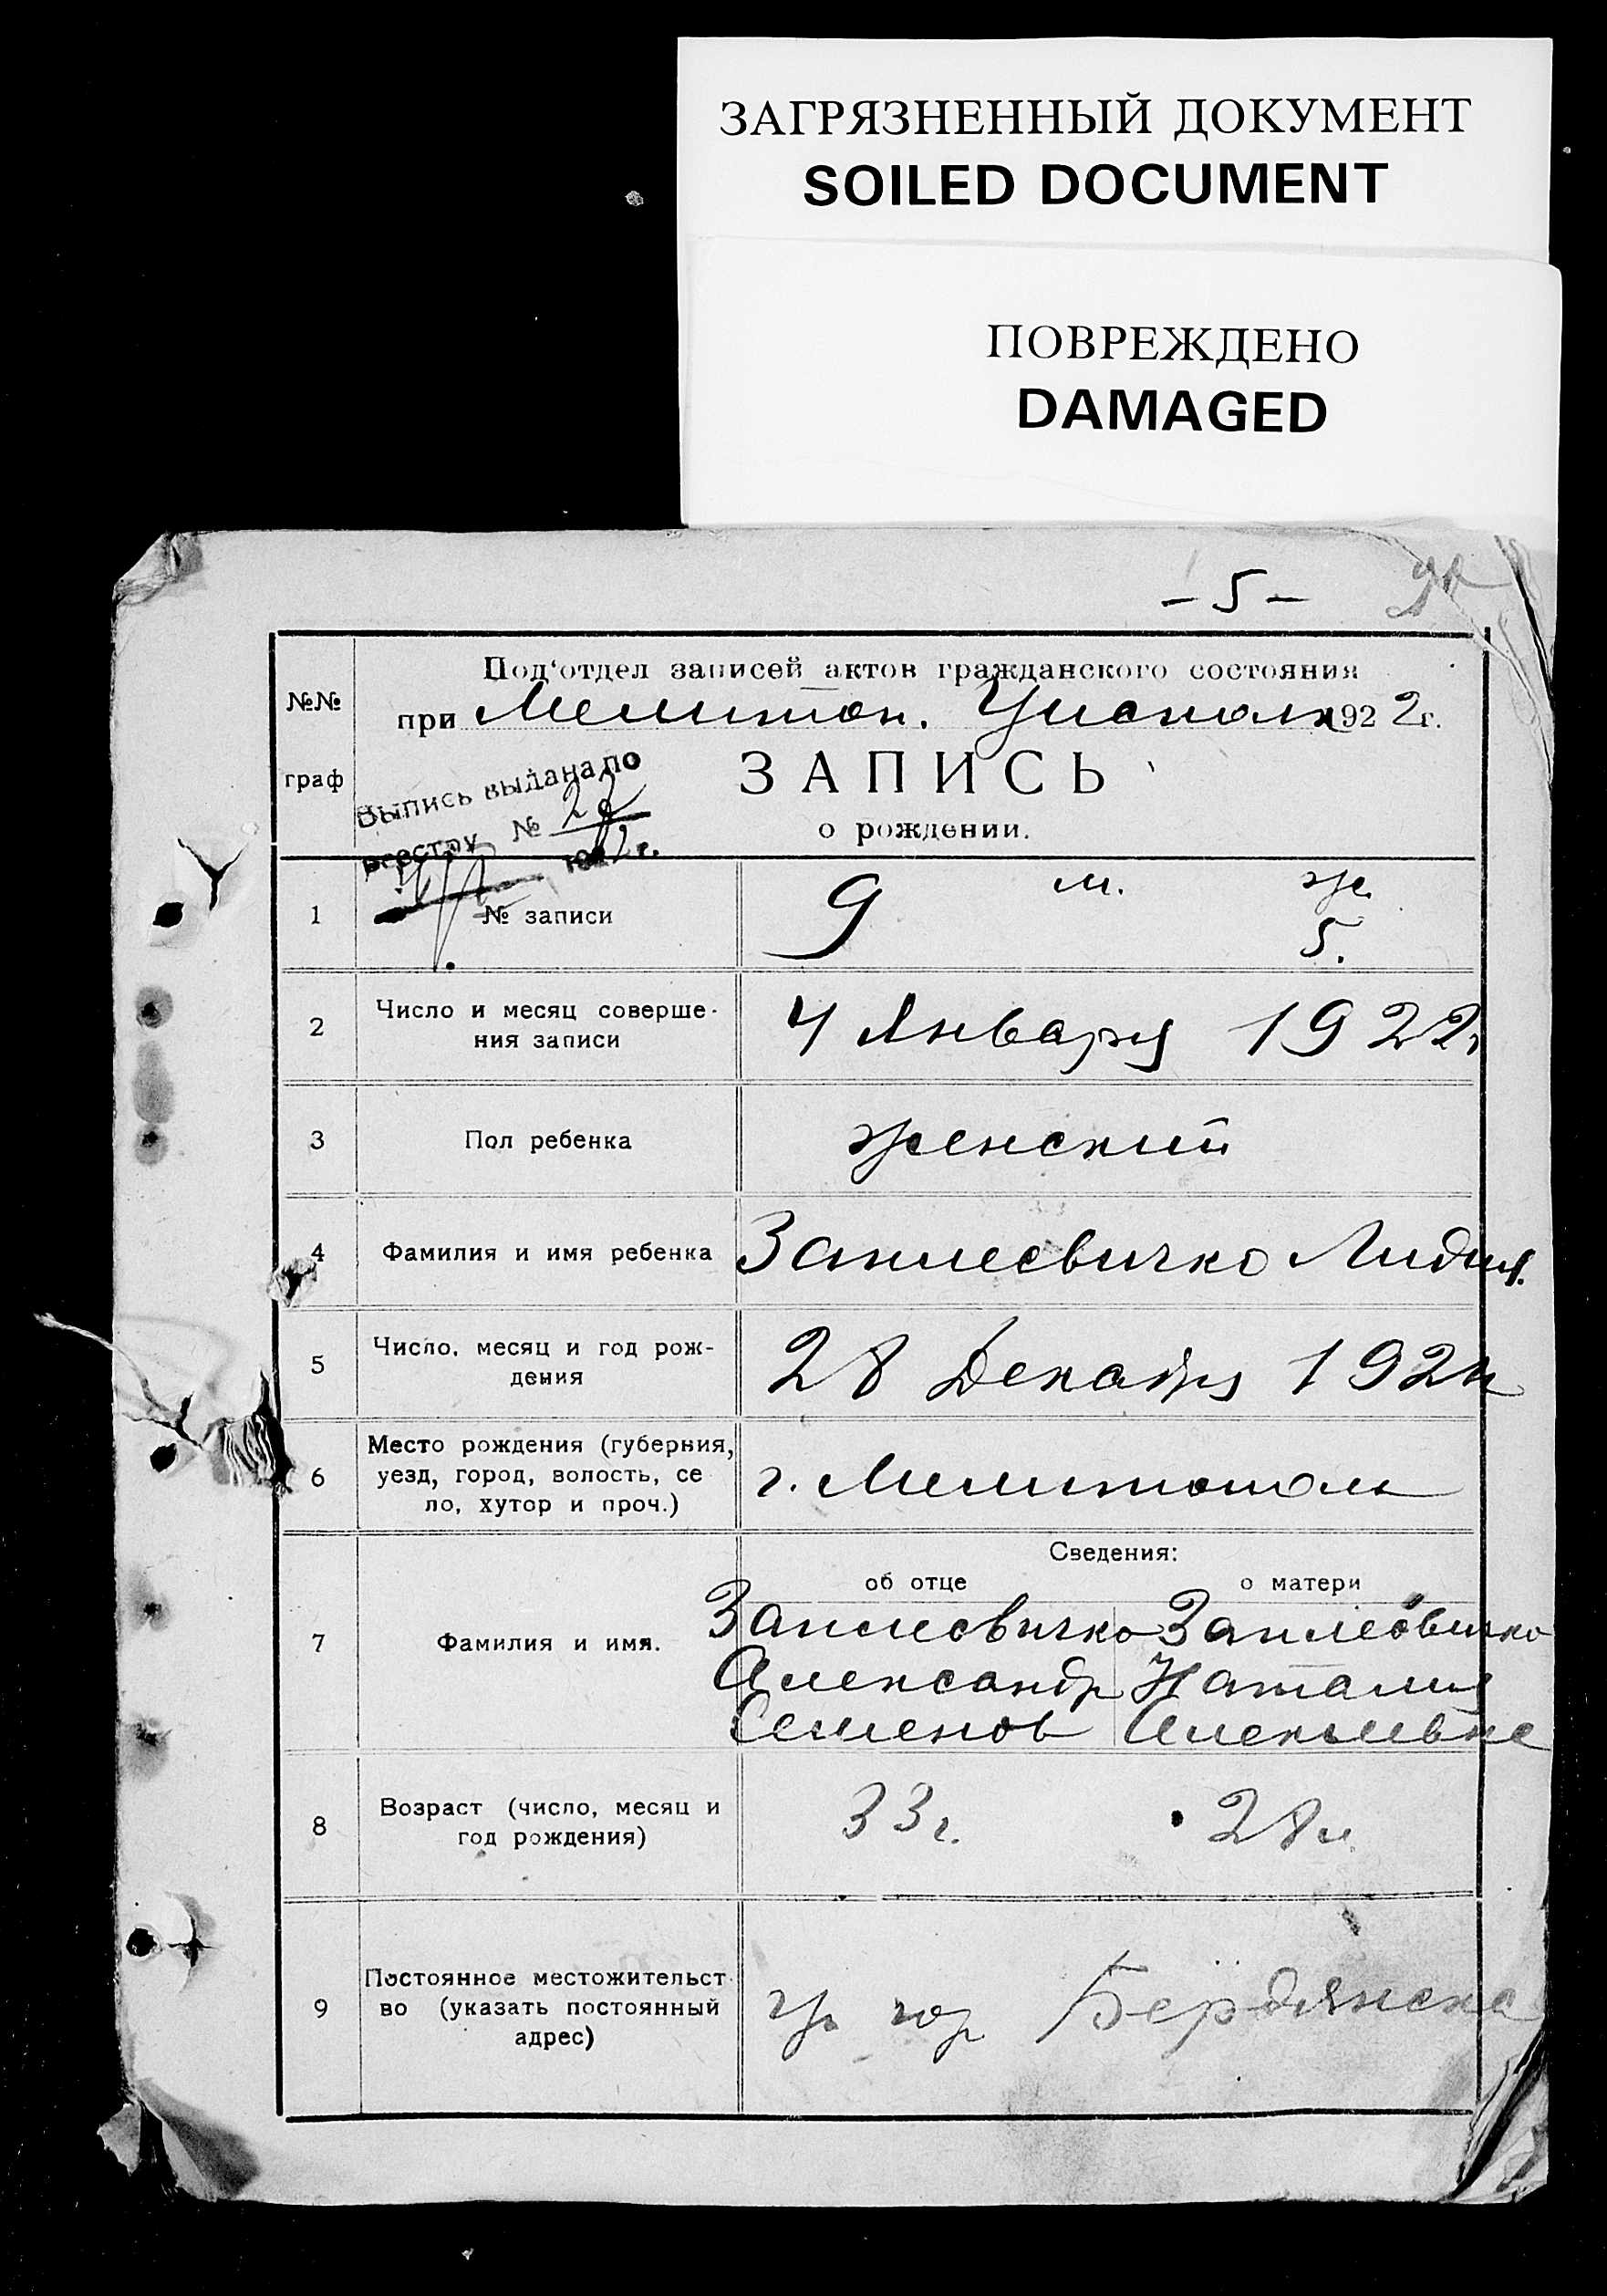 ЗАГРЯЗНЕННЫЙ ДОКУМЕНТ
SOILED DOCUMENT
ПОВРЕЖДЕНО
DAMAGED
– 5 –
Под'отдел записей актов гражданского состояния
№№
при Мелитоп. Уисполк 1922г.
граф
Выпись выдана по
реестру №
ЗАПИСЬ
о рождении.
1
№ записи
9
м.
ж.
5.
2
Число и месяц соверше-
ния записи
4 Января 1922г
3
Пол ребенка
женский
4
Фамилия и имя ребенка
Лидия.
5
Число, месяц и год рож-
дения
28 Декабря
6
Место рождения (губерния,
уезд, город, волость, се
ло, хутор и проч.)
г. Мелитополь
Сведения:
об отце
о матери
7
Фамилия и имя.
Александр
Наталия
Семенов
8
Возраст (число, месяц и
год рождения)
33г.
28
9
Постоянное местожительст
во (указать постоянный
адрес)
гр. гор Бердянска